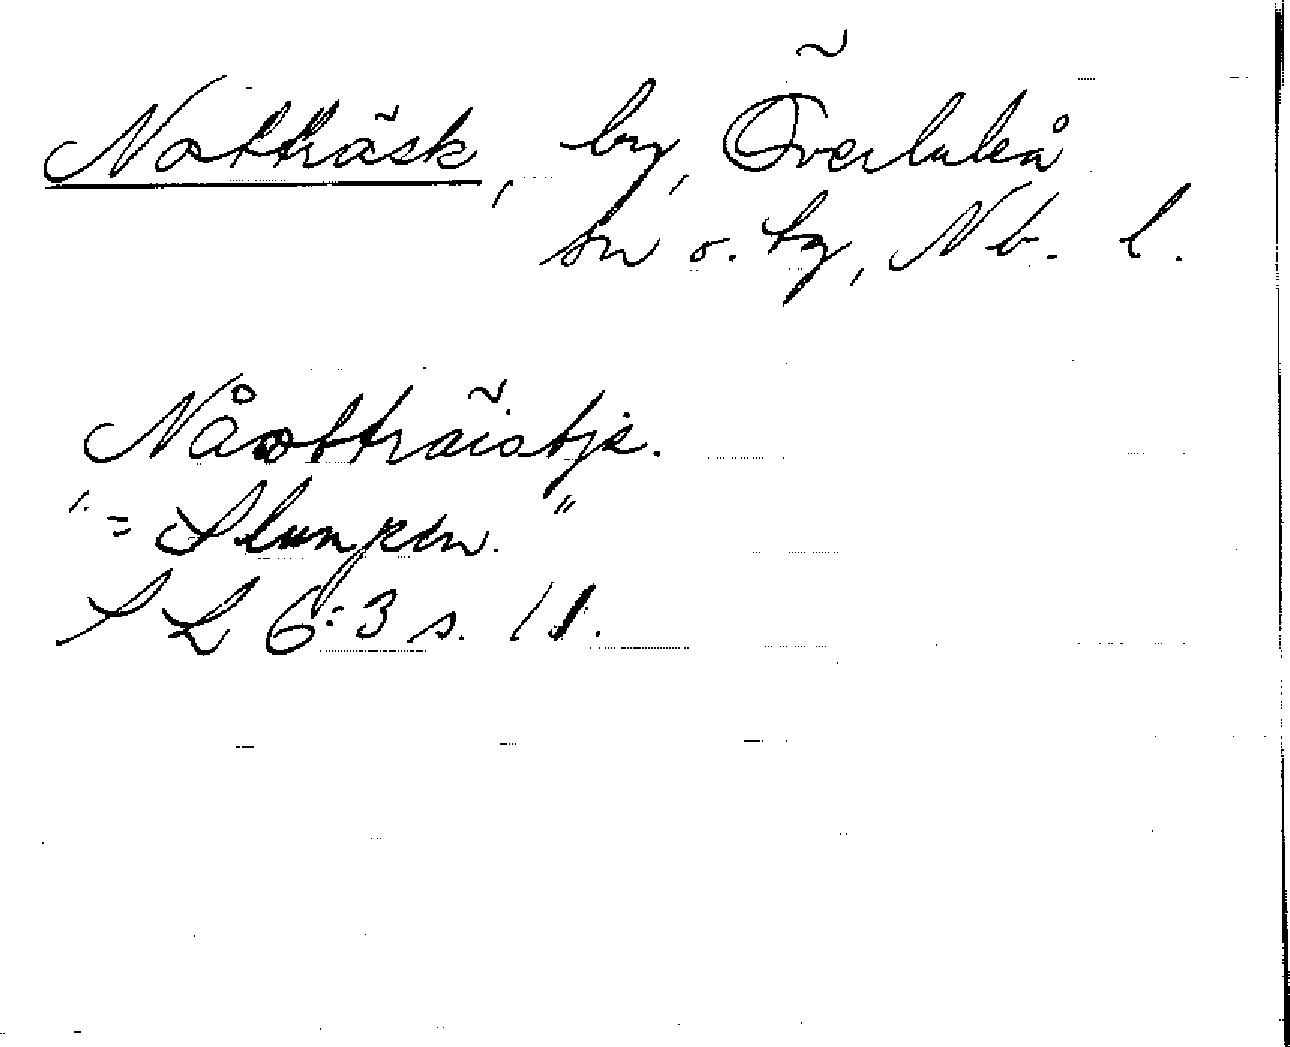 Notträsk, by, Överluleå
sn o. tg, Nb. l.
Nåottäistje.
" = Slumpen. "
S L 6:3 s. 11.